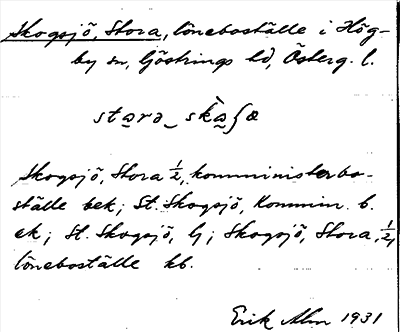 Skogsjö, Stora, löneboställe i Hög-
by sn, Göstrings hd, Österg. l.
stara_ skà̱ʃœ
Skogsjö, Stora ½, komministerbo-
ställe bek; St. Skogsjö, Kommin. b.
ek; St. Skogsjö, G; Skogsjö, Stora, ½,
löneboställe kb.
Erik Alm 1931